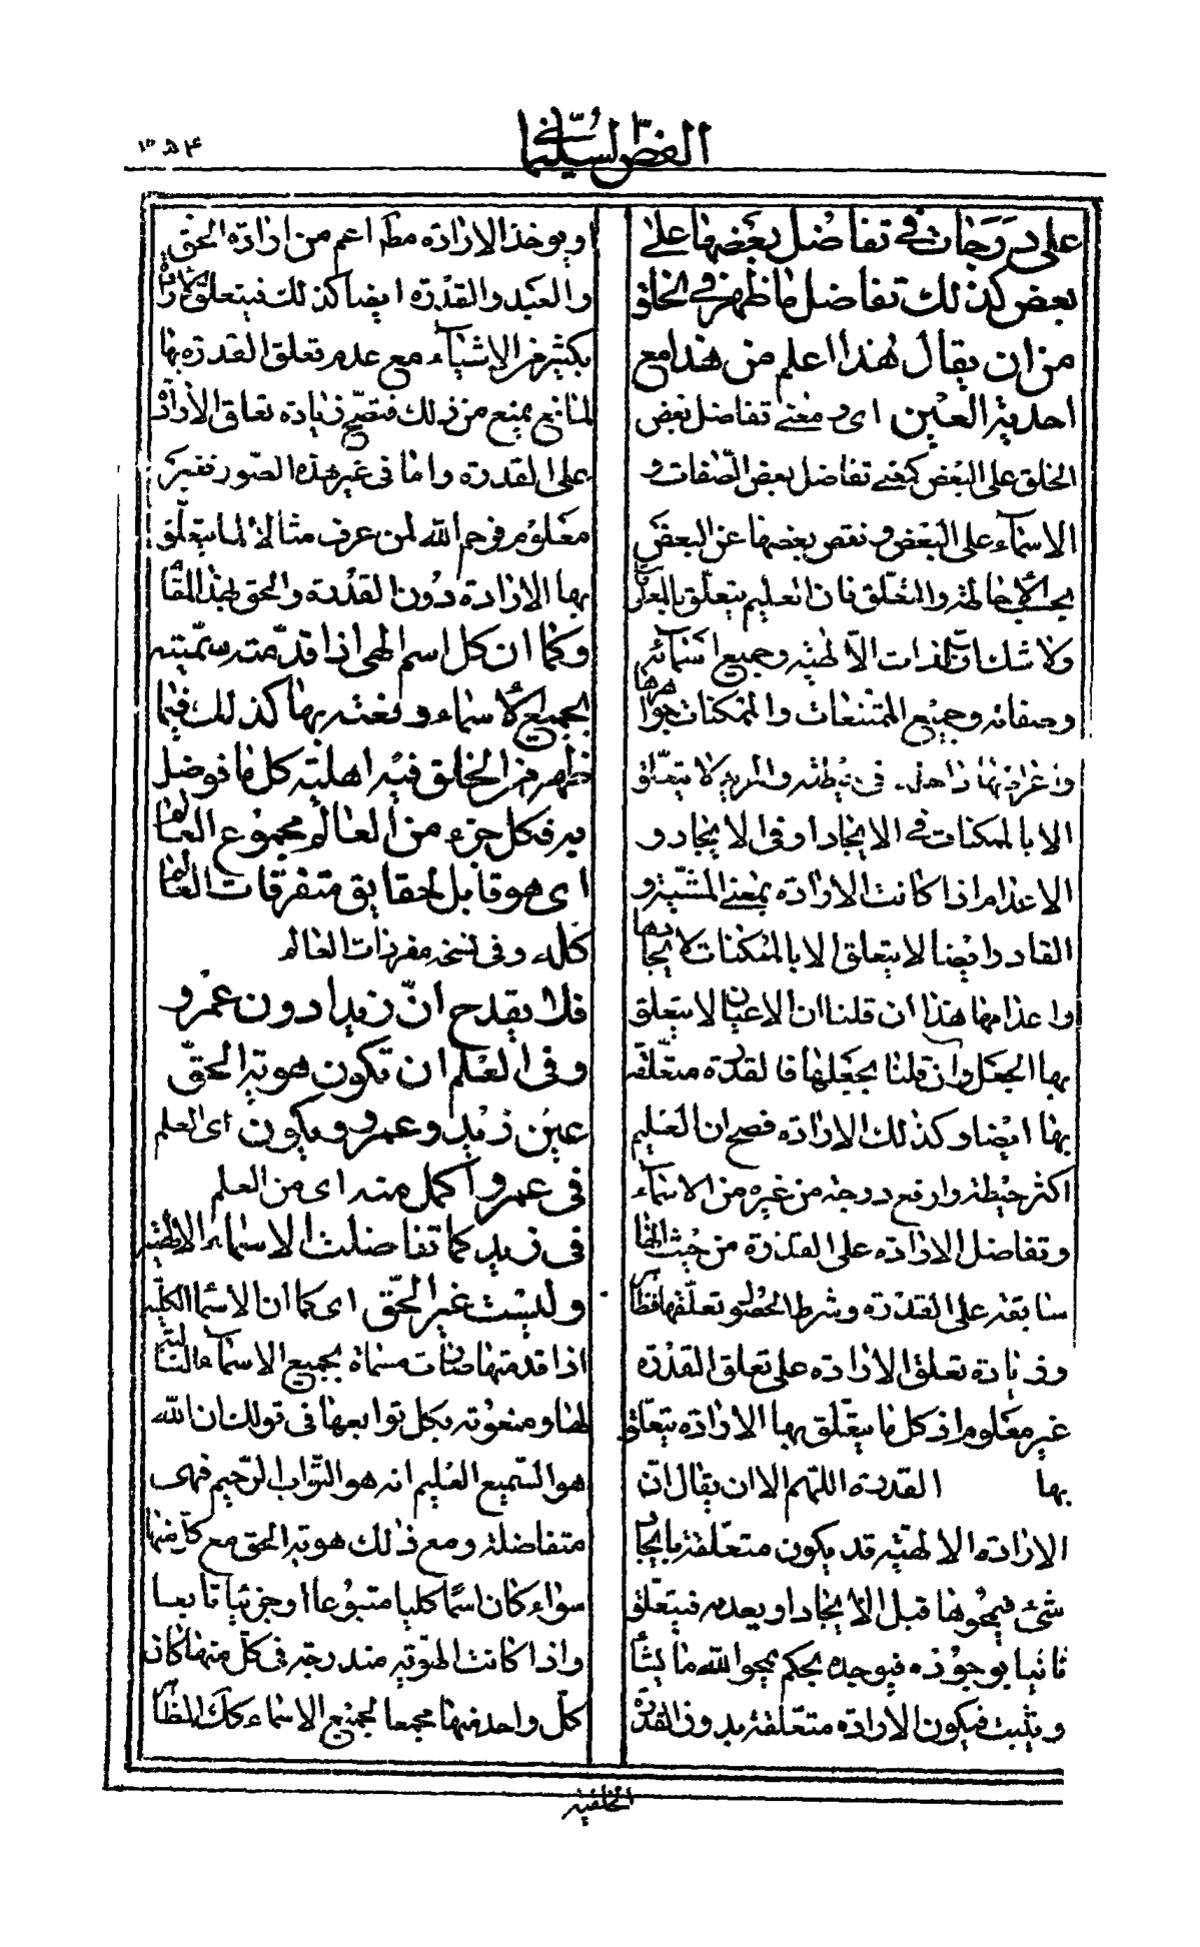 الفص السليمانی
۳۵۴
على درجات فى تفاضل بعضها على
بعض كذلك تفاضل ما ظهر فى الخلق
من ان يقال هذا اعلم من هذا مع
احدية العين اى و معنى تفاضل بعض
الخلق على البعض كمعنى تفاضل بعض الصفات و
الاسماء على البعض و نقص بعضها عن البعض
بحسب الاحاطة والتعلق فان العليم يتعلق بالمعلومات
ولا شك ان الذات الالهية وجميع اسمائه
وصفاته وجميع الممتنعات والممكنات جواهرها
واعراضها داخلة فى حيطته والمريد لا يتعلق
الا بالممكنات فى الايجاد او فى الايجاد و
الاعدام اذا كانت الارادة بمعنى المشية و
القادر ايضا لا يتعلق الا بالممكنات لايجادها
واعدامها هذا ان قلنا ان الاعيان لا يتعلق
بها الجعل وان قلنا بجعلها فالقدرة متعلقة
بها ايضا وكذلك الارادة فصح ان العليم
اكثر حيطة وارفع درجة من غيره من الاسماء
وتفاضل الارادة على القدرة من حيث انها
سابقة على القدرة وشرط لحصول تعلقها فظاهر
وزيادة تعلق الارادة على تعلق القدرة
غير معلوم اذ كل ما يتعلق بها الارادة يتعلق
بها القدرة اللهم الا ان يقال ان
الارادة الالهية قد يكون متعلقة بايجاد
شئ فيمحوها قبل الايجاد او يعدم فيتعلق
ثانيا بوجوده فيوجده بحكم يمحو الله ما يشاء
ويثبت فيكون الارادة متعلقة بدون القدرة
او يوخذ الارادة مطلقا اعم من ارادة الحق
والعبد والقدرة ايضا كذلك فيتعلق الارادة
بكثير من الاشياء مع عدم تعلق القدرة بها
لمانع يمنع من ذلك فتصح زيادة تعلق الارادة
على القدرة واما فى غير هذه الصور فغير
معلوم فرحم الله لمن عرف مثالا لما يتعلق
بها الارادة دون القدرة والحق بهذا المقام
وكما ان كل اسم الهى اذا قدمته سميته
بجميع الاسماء و نعته بها كذلك فيما
ظهر من الخلق فيه اهلية كل ما فوضل
به فكل جزء من العالم مجموع العالم
اى هو قابل لحقايق متفرقات العالم
كله وفى نسخة مفردات العالم
فلا يقدح ان زيدا دون عمرو
و فى العلم ان تكون هوية الحق
عين زيد و عمرو و يكون اى العلم
فى عمرو اكمل منه اى من العلم
فى زيد كما تفاضلت الاسماء الالهية
و ليست غير الحق اى كما ان الاسماء الكلية
اذا قدمتها صارت مسماة بجميع الاسماء التالية
لها ومنعوتة بكل توابعها فى قولك ان الله
هو السميع العليم انه هو التواب الرحيم فهى
متفاضلة و مع ذلك هوية الحق مع كل منها
سواء كان اسما كليا متبوعا او جزئيا تابعا
واذا كانت الهوية مندرجة فى كل منها كان
كل واحد منها مجمعا لجميع الاسماء كذلك المظاهر
الخلقية